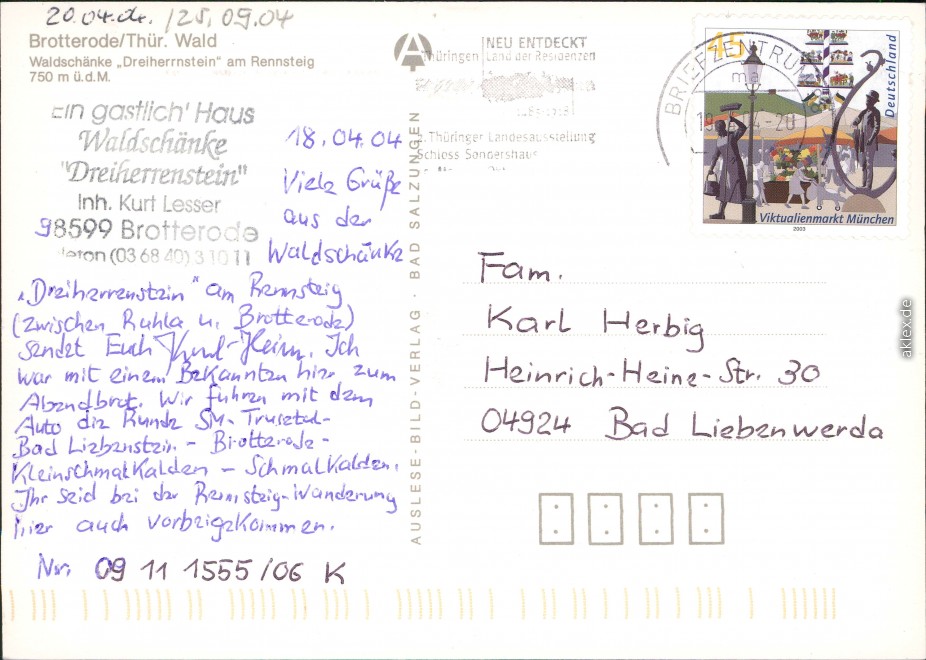 20.04.04. / 25.09.04
Brotterode/Thür. Wald
Waldschänke „Dreiherrnstein“ am Rennsteig
750 m ü.d.M.
Ein gastlich' Haus
Waldschänke
"Dreiherrenstein"
Inh. Kurt Lesser
98599 Brotterode
Telefon (03 68 40) 3 10 11
18.04.04
Viele Grüße
aus der
Waldschänke
„Dreiherrenstein“ am Rennsteig
(zwischen Ruhla u. Brotterode)
sendet Euch Heim. Ich
war mit einem Bekannten hier zum
Abendbrot. Wir fuhren mit dem
Auto die Runde SM-Trusetal-
Bad Liebenstein - Brotterode -
Kleinschmalkalden - Schmalkalden.
Ihr seid bei der Rennsteig-Wanderung
hier auch vorbeigekommen.
Nr. 09 11 1555/06 K
AUSLESE-BILD-VERLAG · BAD SALZUNGEN
Thüringen
NEU ENTDECKT
Land der Residenzen
. Thüringer Landesausstellung
Schloss Sondershaus
BRIEFZENTRUM
45
Deutschland
Viktualienmarkt München
2003
Fam.
Karl Herbig
Heinrich-Heine-Str. 30
04924 Bad Liebenwerda
aklex.de